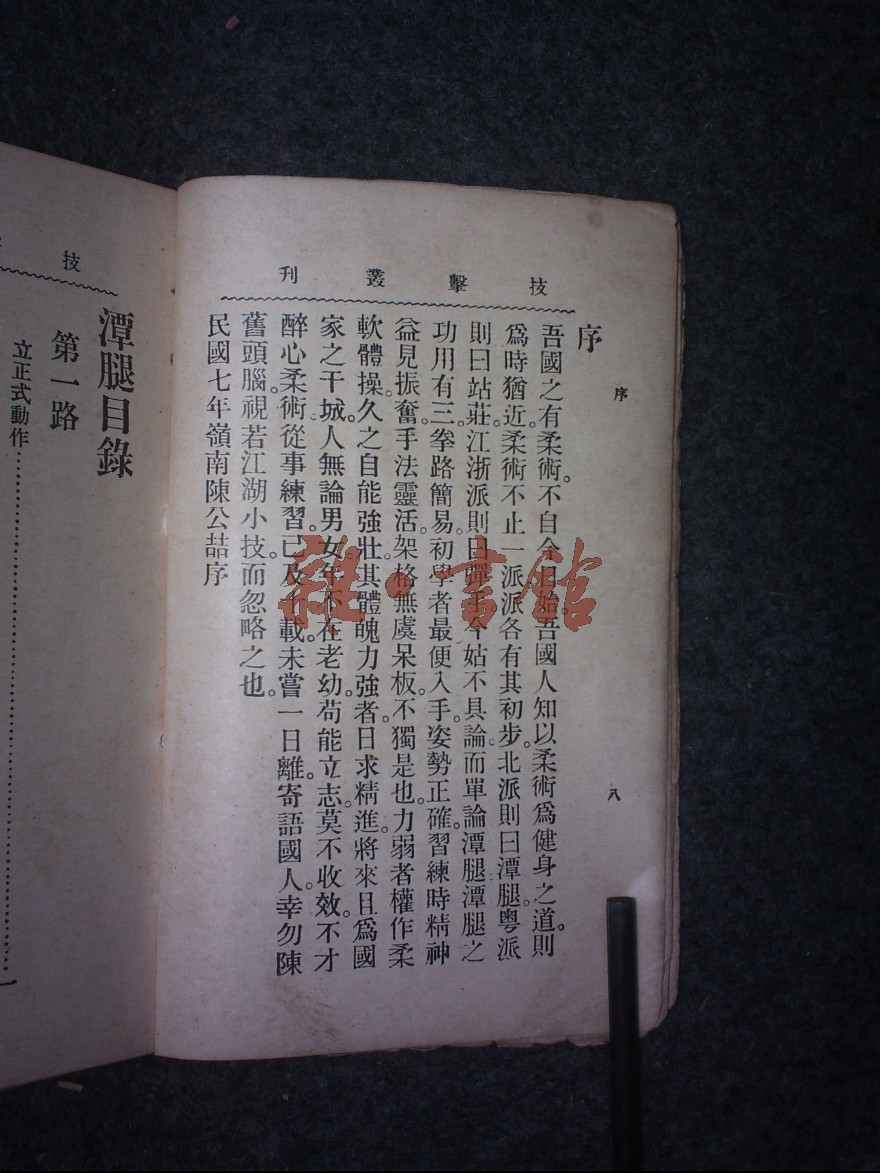 技擊叢刊
序
八
序
吾國之有柔術。不自今日始。吾國人知以柔術爲健身之道。則
爲時猶近。柔術不止一派。派各有其初步。北派則曰潭腿。粵派
則曰站莊。江浙派則曰彈手。今姑不具論。而單論潭腿。潭腿之
功用有三。拳路簡易。初學者最便入手。姿勢正確。習練時精神
益見振奮。手法靈活。架格無虞呆板。不獨是也。力弱者權作柔
軟體操。久之自能強壯其體魄。力強者日求精進。將來且爲國
家之干城。人無論男女。年不在老幼。苟能立志。莫不收效。不才
醉心柔術。從事練習。已及十載。未嘗一日離。寄語國人。幸勿陳
舊頭腦。視若江湖小技而忽略之也。
民國七年嶺南陳公喆序
技
潭腿目錄
第一路
立正式動作……………………一
雜·書館